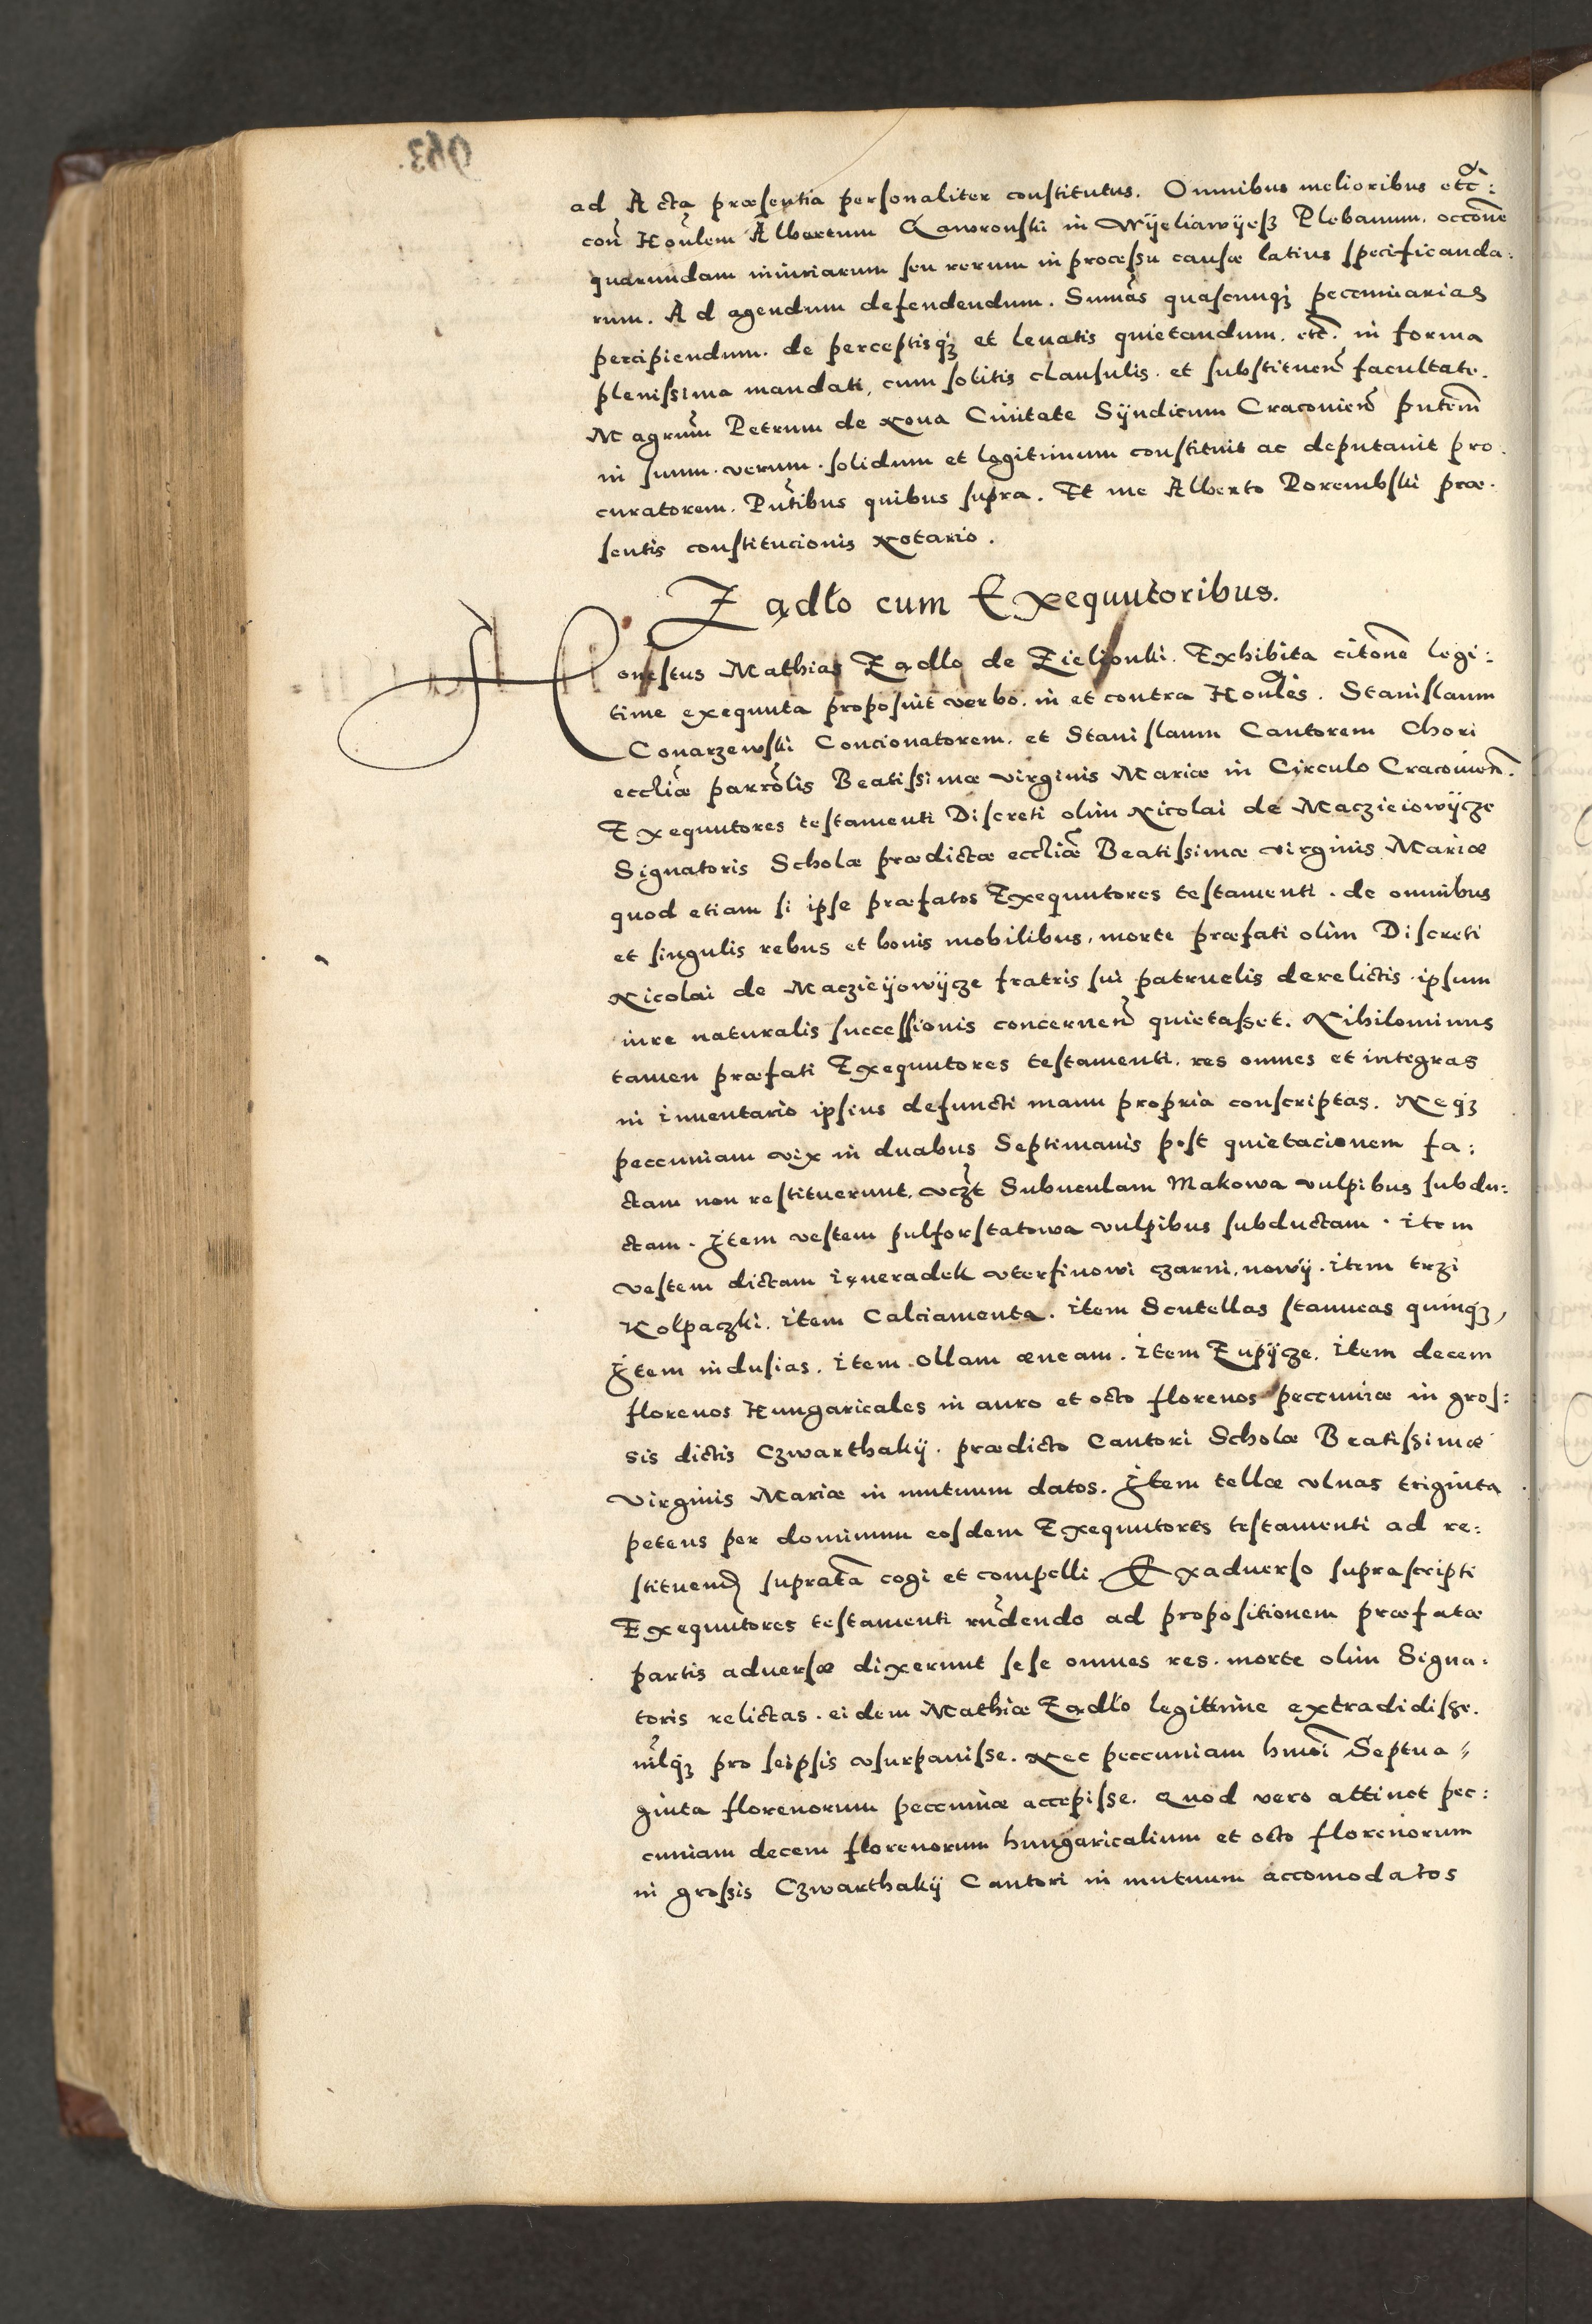 963.
ad Acta præsentia personaliter constitutus. Omnibus melioribus etc̃:
con̄ Hon̄lem Albertum Gawronski in Wÿeliawÿesz Plebanum. occōne
quarundam iniuriarum seu rerum in processu causæ latius specificanda:
rum. Ad agendum defendendum. Sum̄as quascunqꝫ peccuniarias
percipiendum. de perceptisqꝫ et leuatis quietandum. etc̃. in forma
plenissima mandati, cum solitis clausulis. et substituen̄ facultate.
Magrum̄ Petrum de Noua Ciuitate Sÿndicum Cracouien̄ pn̄tem
in suum. verum. solidum et legitimum constituit ac deputauit pro.
curatorem. Pn̄tibus quibus supra. Et me Alberto Porembski præ.
sentis constitucionis Notario.
Ządło cum Exequutoribus.
Honestus Mathias Ządlo de Zielionki. Exhibita citōne legi:
time exequuta proposuit verbo. in et contra Hon̄les. Stanislaum
Conarzewski Concionatorem. et Stanislaum Cantorem Chori
eccliǣ parrōlis Beatissimæ virginis Mariæ in Circulo Cracouien̄.
Exequutores testamenti Discreti olim Nicolai de Maczieiowÿcze
Signatoris Scholæ prædictæ eccliǣ Beatissimæ virginis Mariæ
quod etiam si ipse præfatos Exequutores testamenti. de omnibus
et singulis rebus et bonis mobilibus, morte præfati olim Discreti
Nicolai de Maczieÿowÿcze fratris sui patruelis derelictis ipsum
iure naturalis successionis concernen̄ quietasset. Nihilominus
tamen præfati Exequutores testamenti. res omnes et integras
in inuentario ipsius defuncti manu propria conscriptas. Neqꝫ
peccuniam vix in duabus Septimanis post quietacionem fa:
ctam non restituerunt. vcꝫt Subuculam Makowa vulpibus subdu:
ctam. Item vestem pulforstatowa vulpibus subductam. item
vestem dictam ięneradek vterfinowi czarni. nowÿ. item trzi
Kolpaczki. item Calciamenta. item Scutellas stanneas quinqꝫ,
Item indusias. item ollam æneam. item Zupÿcze. item decem
florenos Hungaricales in auro et octo florenos peccuniæ in gros:
sis dictis Czwarthakÿ. prædicto Cantori Scholæ Beatissimæ
Virginis Mariæ in mutuum datos. Item tellæ vlnas triginta
petens per dominum eosdem Exequutores testamenti ad re:
stituend̄ suprata̅ cogi et compelli. Exaduerso suprascripti
Exequutores testamenti rn̄dendo ad propositionem præfatæ
partis aduersæ dixerunt sese omnes res. morte olim Signa.
toris relictas. eidem Mathiæ Ządło legittime extradidisse.
nīlqꝫ pro seipsis vsurpauisse. Nec peccuniam hmōi Septua⸗
ginta florenorum peccuniæ accepisse. Quod vero attinet pec:
cuniam decem florenorum hungaricalium et octo florenorum
in grossis Czwarthakÿ Cantori in mutuum accomodatos